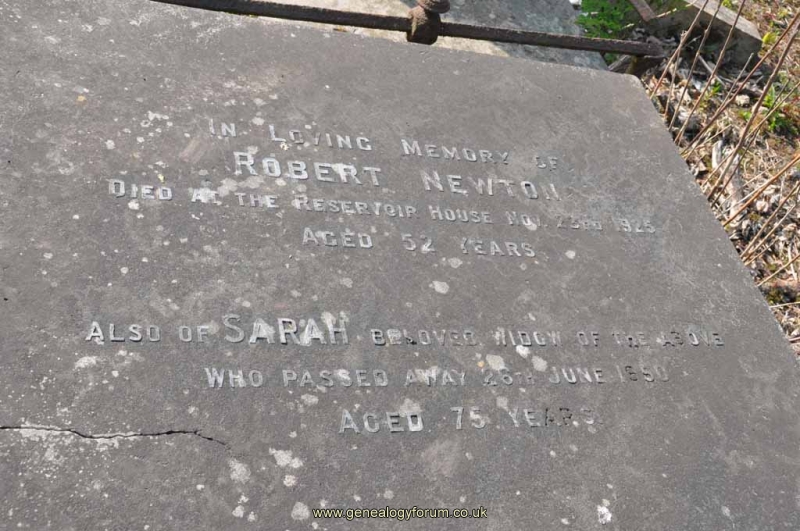 IN LOVING MEMORY OF
ROBERT NEWTON
DIED AT THE RESERVOIR HOUSE NOV. 23RD 1925
AGED 52 YEARS
ALSO OF SARAH BELOVED WIDOW OF THE ABOVE
WHO PASSED AWAY JUNE 1950
AGED 75 YEARS
www.genealogyforum.co.uk